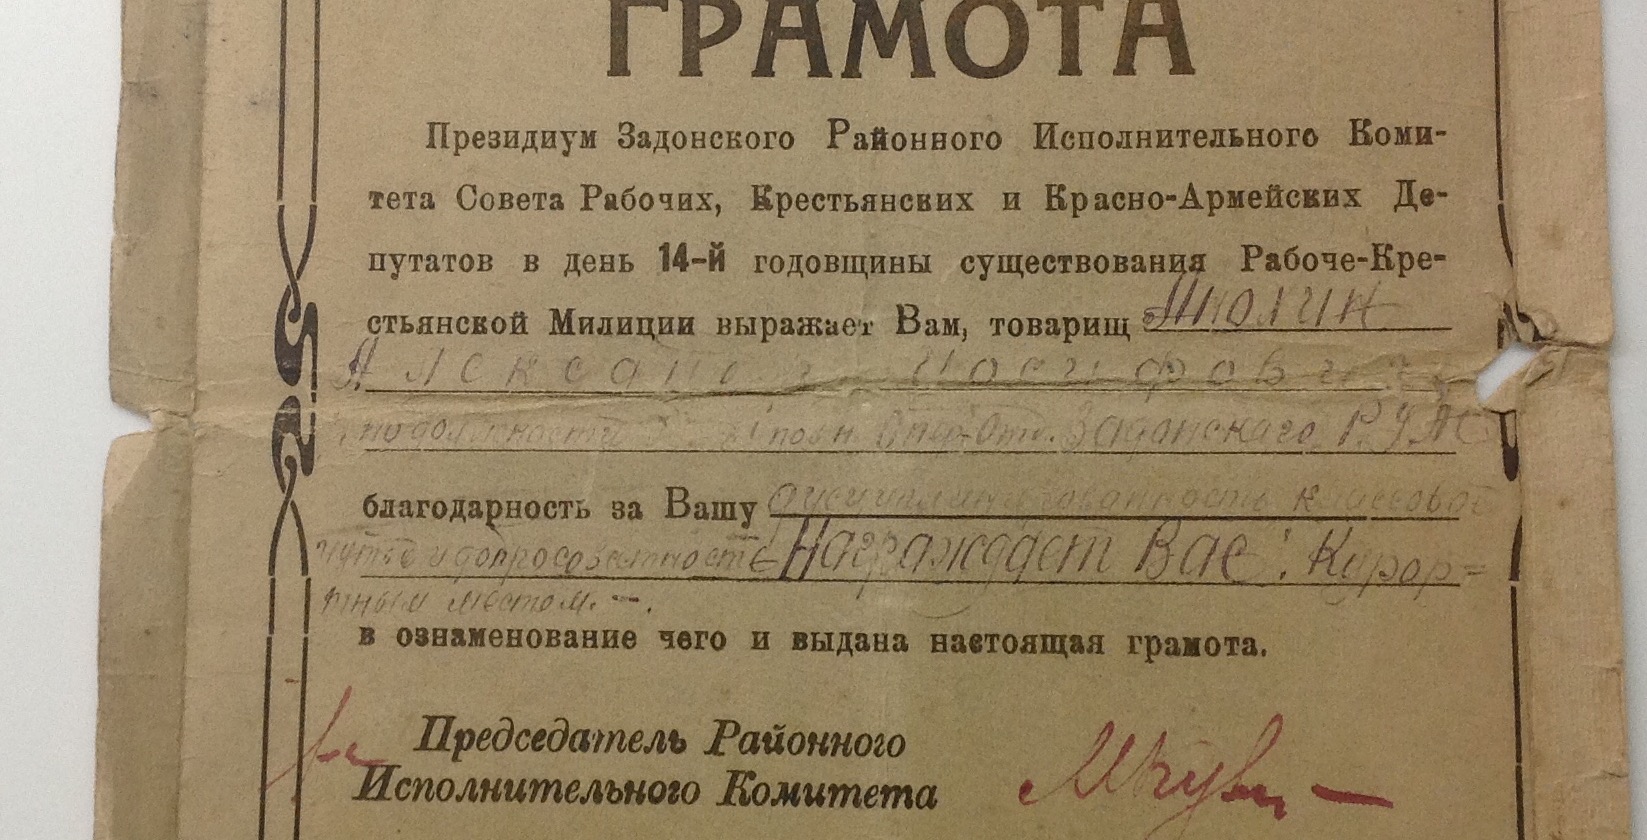 ГРАМОТА
Президиум Задонского Районного Исполнительного Коми-
тета Совета Рабочих, Крестьянских и Красно-Армейских Де-
путатов в день 14-й годовщины существования Рабоче-Кре-
стьянской Милиции выражает Вам, товарищ
Иосифович
по должности Задонского
благодарность за Вашу дисциплинированность классовое
чутье и добросовестность Награждает Вас: Курор-
тным местом. —.
в ознаменование чего и выдана настоящая грамота.
Председатель Районного
Исполнительного Комитета